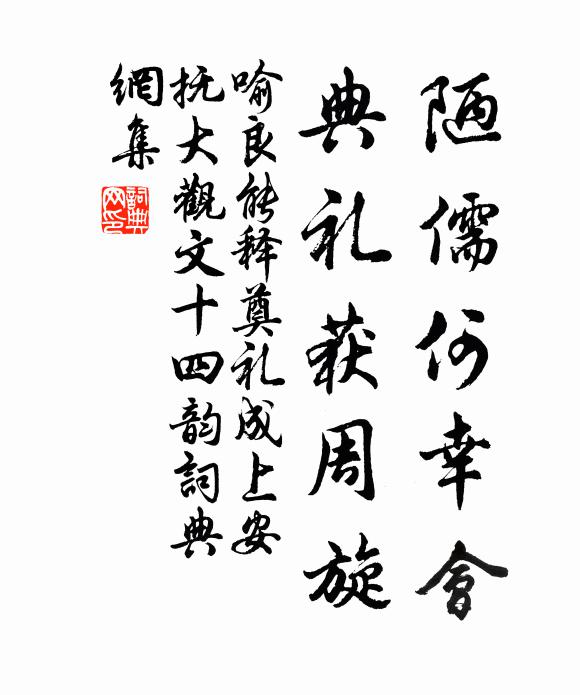 陋儒何幸會
典礼获周旋
喻良能释奠礼成上安
抚大觀文十四韵詞典
網集
詞典網印